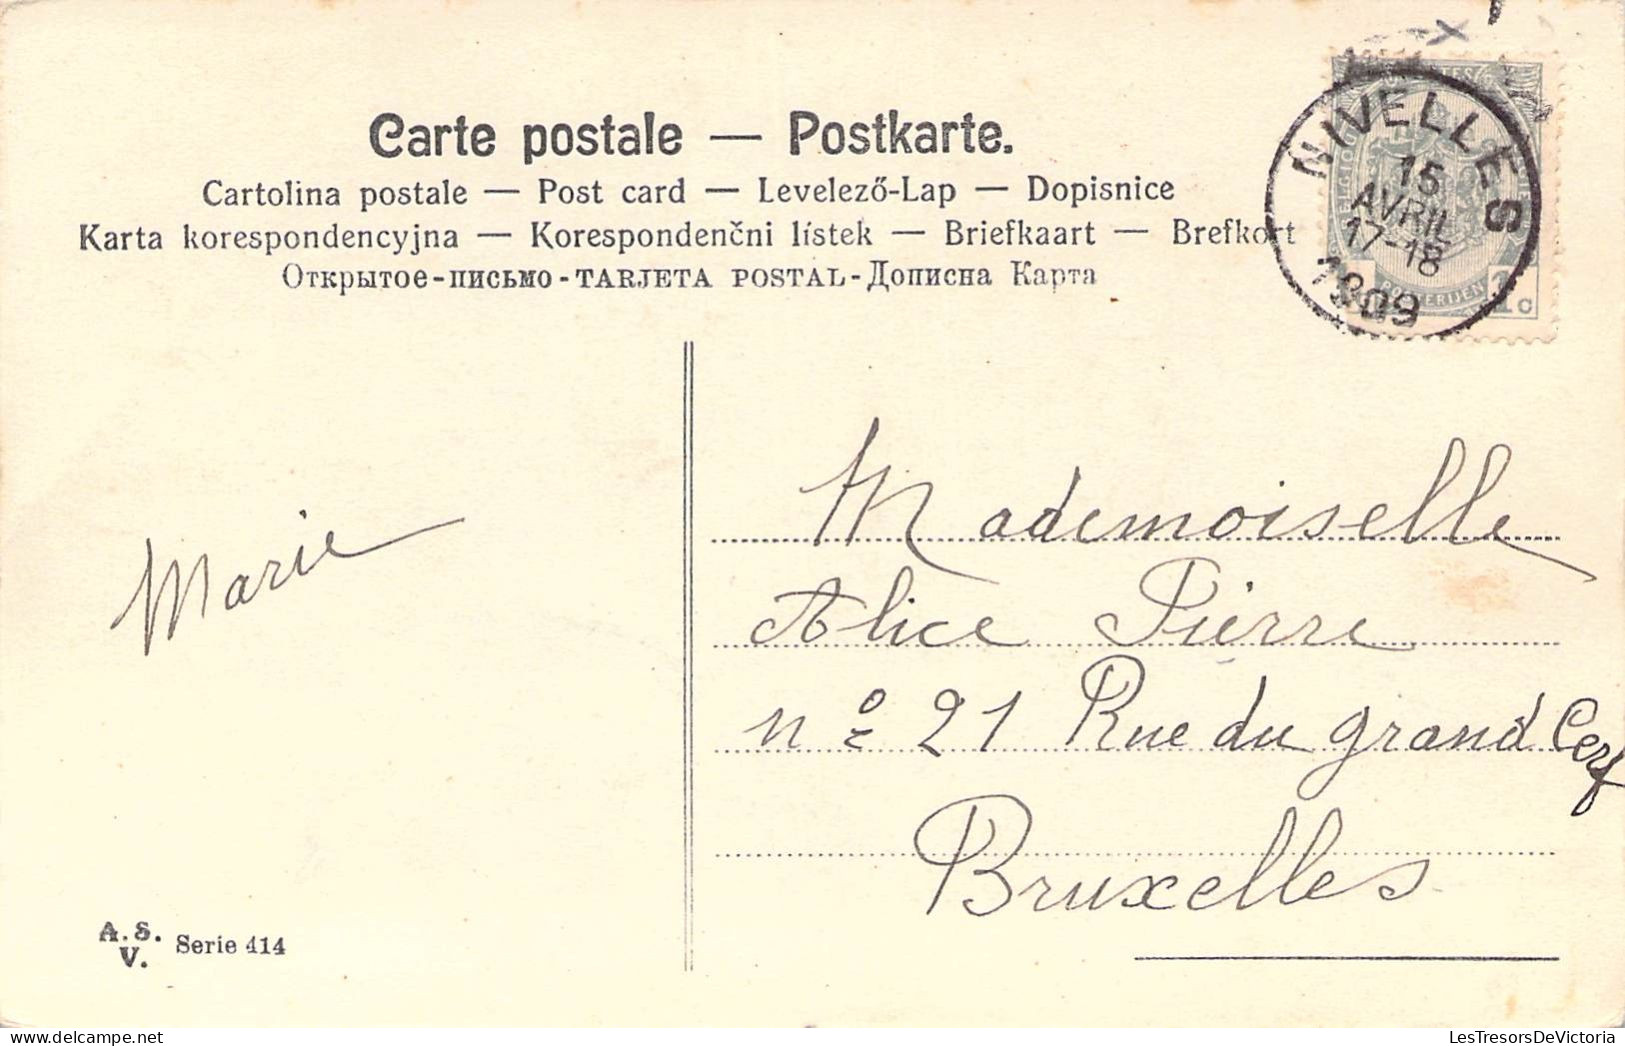 Carte postale — Postkarte.
Cartolina postale — Post card — Levelező-Lap — Dopisnice
Karta korespondencyjna — Korespondenčni lístek — Briefkaart — Brefkort
Открытое-письмо - TARJETA POSTAL - Дописна Карта
NIVELLES
15
AVRIL
17-18
1909
POSTERIJEN
1 c
Marie
Mademoiselle
Alice Pierre
nº 21 Rue du grand Cerf
Bruxelles
A. S.
V.
Serie 414
delcampe.net
LesTresorsDeVictoria